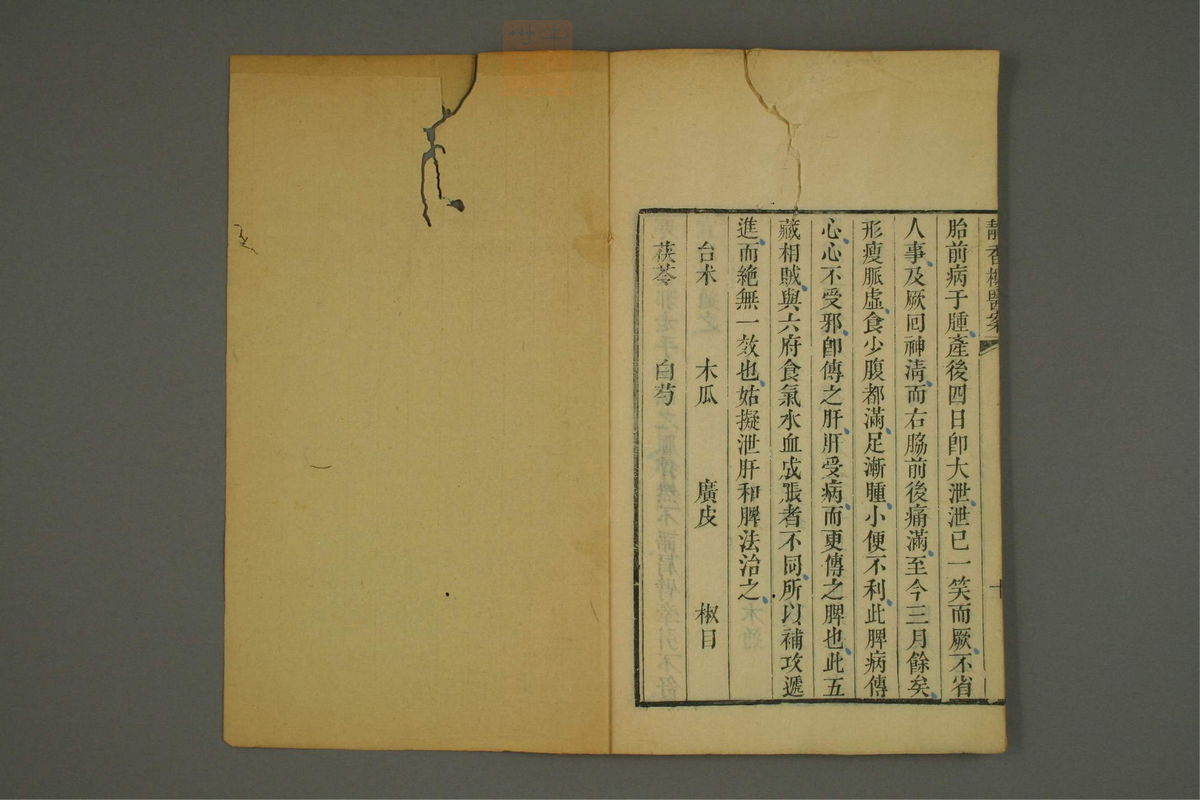 靜香樓醫案
十
胎前病于腫產後四日卽大泄泄已一笑而厥不省
人事及厥回神清而右脇前後痛滿至今三月餘矣
形瘦脈虛食少腹都滿足漸腫小便不利此脾病傳
心心不受邪卽傳之肝肝受病而更傳之脾也此五
藏相賊與六府食氣水血成脹者不同所以補攻遞
進而絕無一效也姑擬泄肝和脾法治之
台朮 木瓜 廣皮 椒目
茯苓 白芍